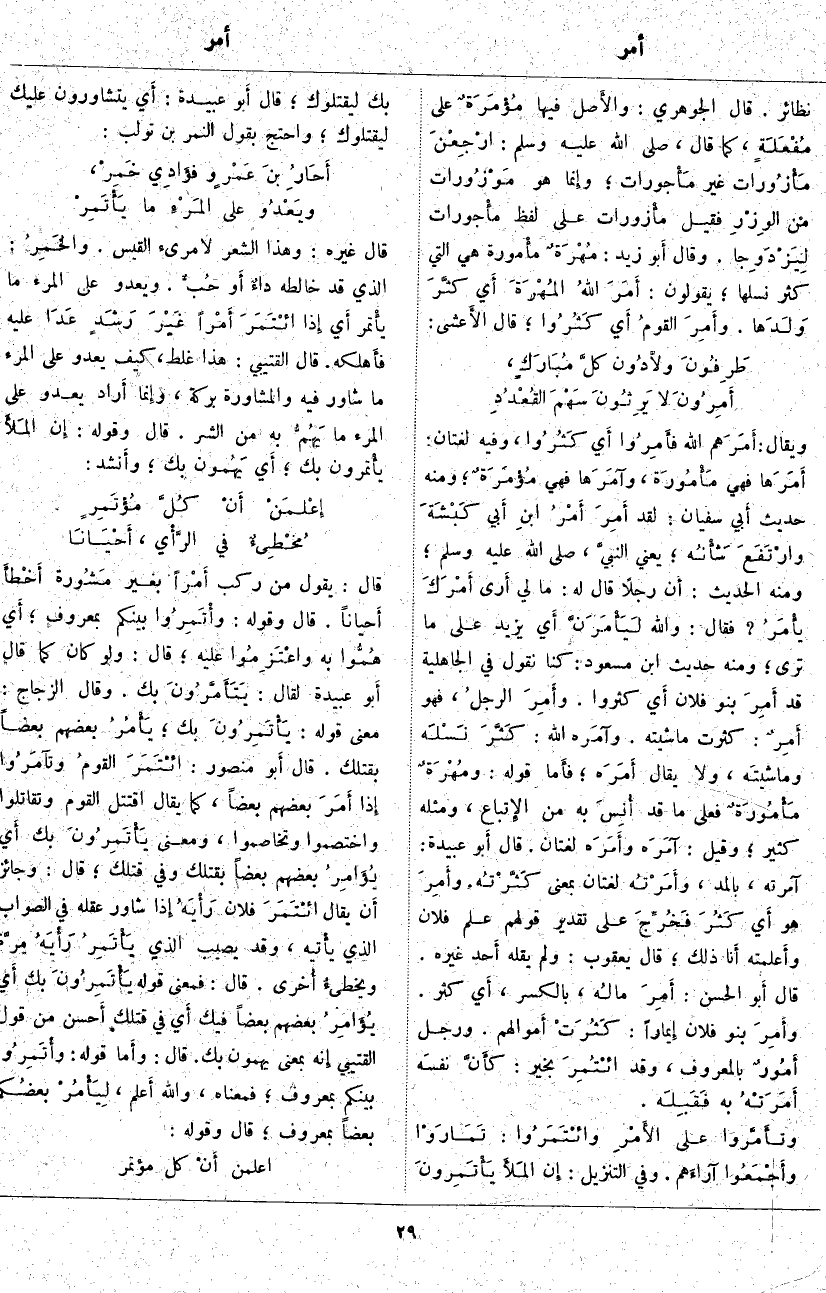 أمر
أمر
نظائر . قال الجوهري : والأَصل فيها مُؤْمَرَةٌ على
مُفْعَلَةٍ ، كما قال ، صلى الله عليه وسلم : ارْجِعْنَ
مَأْزُورات غير مَأْجورات ؛ وإنما هو مَوْزُورات
من الوِزْرِ فقيل مأْزورات على لفظ مأْجورات
لِيَزْدَوِجا . وقال أبو زيد : مُهْرَةٌ مأْمورة هي التي
كثر نسلها ؛ يقولون : أَمَرَ اللهُ المُهْرَةَ أَي كَثَّرَ
وَلَدَها . وأَمِرَ القومُ أَي كَثُرُوا ؛ قال الأَعشى :
طَرِفُونَ ولاَّدُون كلَّ مُبَارَكٍ ،
أَمِرُونَ لا يَرِثُونَ سَهْمَ القُعْدُدِ
ويقال : أَمَرَهم الله فأَمِرُوا أَي كَثُرُوا ، وفيه لغتان :
أَمَرَها فهي مَأْمُورَة ، وآمَرَها فهي مُؤْمَرَةٌ ؛ ومنه
حديث أبي سفيان : لقد أَمِرَ أَمْرُ ابنِ أَبي كَبْشَةَ
وارْتَفَعَ شَأْنُه ؛ يعني النبيَّ ، صلى الله عليه وسلم ؛
ومنه الحديث : أن رجلًا قال له : ما لي أَرى أَمْرَكَ
يأْمَرُ ؟ فقال : والله لَيَأْمَرَنَّ أَي يزيد على ما
ترى ؛ ومنه حديث ابن مسعود : كنا نقول في الجاهلية
قد أَمِرَ بنو فلان أَي كثروا . وأَمِرَ الرجلُ ، فهو
أَمِرٌ : كثرت ماشيته . وآمَره الله : كَثَّرَ نَسْلَه
وماشيتَه ، ولا يقال أَمَرَه ؛ فأَما قوله : ومُهْرَةٌ
مَأْمُورَةٌ فعلى ما قد أُنِسَ به من الإتباع ، ومثله
كثير ؛ وقيل : آمَرَه وأَمَرَه لغتان . قال أبو عبيدة :
آمرته ، بالمد ، وأَمَرْتُه لغتان بمعنى كَثَّرْتُه . وأَمِرَ
هو أَي كَثُرَ فَخُرِّجَ على تقدير قولهم علم فلان
وأعلمته أنا ذلك ؛ قال يعقوب : ولم يقله أحد غيره .
قال أبو الحسن : أَمِرَ مالُه ، بالكسر ، أَي كثر .
وأَمِرَ بنو فلان إيماراً : كَثُرَتْ أموالهم . ورجل
أَمُورٌ بالمعروف ، وقد ائتُمِرَ بخير : كأَنَّ نفسَه
أَمَرَتْهُ به فَقَبِلَه .
وتأَمَّروا على الأَمْرِ وائْتَمَرُوا : تَمَارَوْا
وأَجْمَعُوا آراءَهم . وفي التنزيل : إن المَلأَ يَأْتَمِرُونَ
بك ليقتلوك ؛ قال أبو عبيدة : أَي يتشاورون عليك
ليقتلوك ؛ واحتج بقول النمر بن تولب :
أَحارُ بنَ عَمْرٍو فؤَادِي خَمِرْ ،
ويَعْدُو على المَرْءِ ما يَأْتَمِرْ
قال غيره : وهذا الشعر لامرىء القيس . والخَمِرُ :
الذي قد خالطه داءٌ أَو حُبٌّ . ويعدو على المرء ما
يأتمر أَي إذا ائْتَمَرَ أَمْراً غَيْرَ رَشَدٍ عَدَا عليه
فأَهلكه . قال القتيبي : هذا غلط ، كيف يعدو على المرء
ما شاور فيه والمشاورة بركة ، وإنما أراد يعدو على
المرء ما يَهُمُّ به من الشر . قال وقوله : إن المَلأَ
يأتمرون بك ؛ أَي يَهُمون بك ؛ وأنشد :
إعْلَمَنْ أَنْ كُلَّ مُؤْتَمِرٍ
مُخْطِىءٌ في الرَّأْي ، أَحْيَانَا
قال : يقول من ركب أَمْراً بغير مَشُورة أَخْطأَ
أحياناً . قال وقوله : وأْتَمِرُوا بينكم بمعروف ؛ أَي
هُمُّوا به واعْتَزِمُوا عليه ؛ قال : ولو كان كما قال
أبو عبيدة لقال : يَتَأَمَّرُونَ بك . وقال الزجاج :
معنى قوله : يَأْتَمِرُونَ بك ؛ يَأْمُرُ بعضهم بعضاً
بقتلك . قال أبو منصور : ائْتَمَرَ القومُ وتآمَرُوا
إذا أَمَرَ بعضهم بعضاً ، كما يقال اقتتل القوم وتقاتلوا
واختصموا وتخاصموا ، ومعنى يَأْتَمِرُونَ بك أَي
يُؤَامِرُ بعضهم بعضاً بقتلك وفي قتلك ؛ قال : وجائز
أن يقال ائْتَمَرَ فلان رَأْيَهُ إذا شاور عقله في الصواب
الذي يأتيه ، وقد يصيب الذي يَأْتَمِرُ رَأْيَهُ مرَّة
ويخطىءُ أُخرى . قال : فمعنى قوله يَأْتَمِرُونَ بك أَي
يُؤَامِرُ بعضهم بعضاً فيك أَي في قتلك أحسن من قول
القتيبي إنه بمعنى يهمون بك . قال : وأما قوله : وأْتَمِرُوا
بينكم بمعروف ؛ فمعناه ، والله أعلم ، لِيَأْمُرْ بعضُكم
بعضاً بمعروف ؛ قال وقوله :
اعلمن أَنْ كل مؤتمر
٢٩